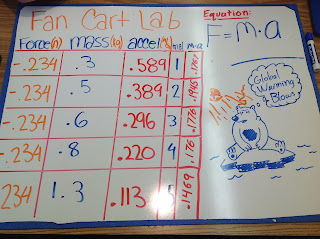 Fan Cart Lab
Equation:
F=m·a
Force(n) mass(kg) accel(  ) trial m·a
-.234 .3 .589 1 .1767
-.234 .5 .389 2 .1945
-.234 .6 .296 3 .1776
-.234 .8 .220 4 .176
234 1.3 .113 5 .1469
Global
Warming
Blows